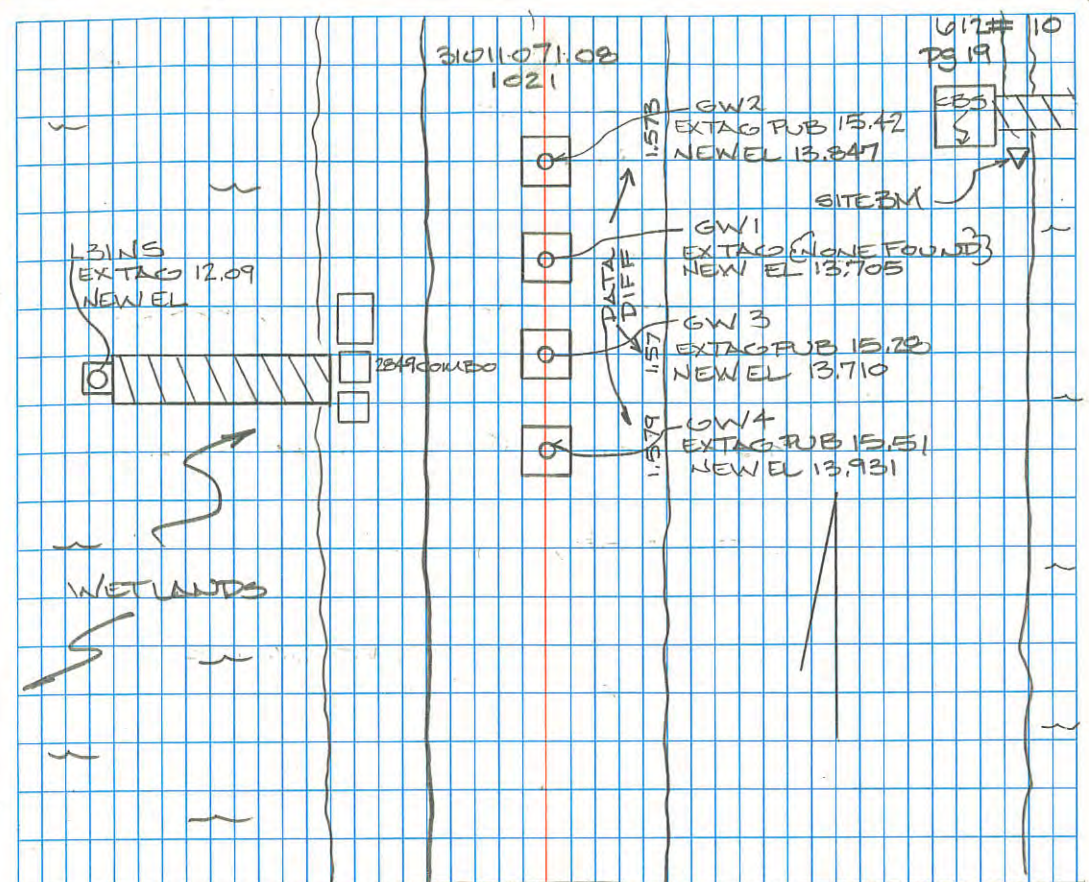 31011.071.08
1021
612# 10
pg 19
EBS
SITE BM
1.573
GW2
EXTAG PUB 15.42
NEW EL 13.847
GW1
EXTAG {NONE FOUND}
NEW EL 13.705
DATA
DIFF
1.57
GW 3
EXTAG PUB 15.28
NEW EL 13.710
1.579
GW4
EXTAG PUB 15.51
NEW EL 13.931
L31NS
EXTAG 12.09
NEW EL
2849 COMBO
WETLANDS